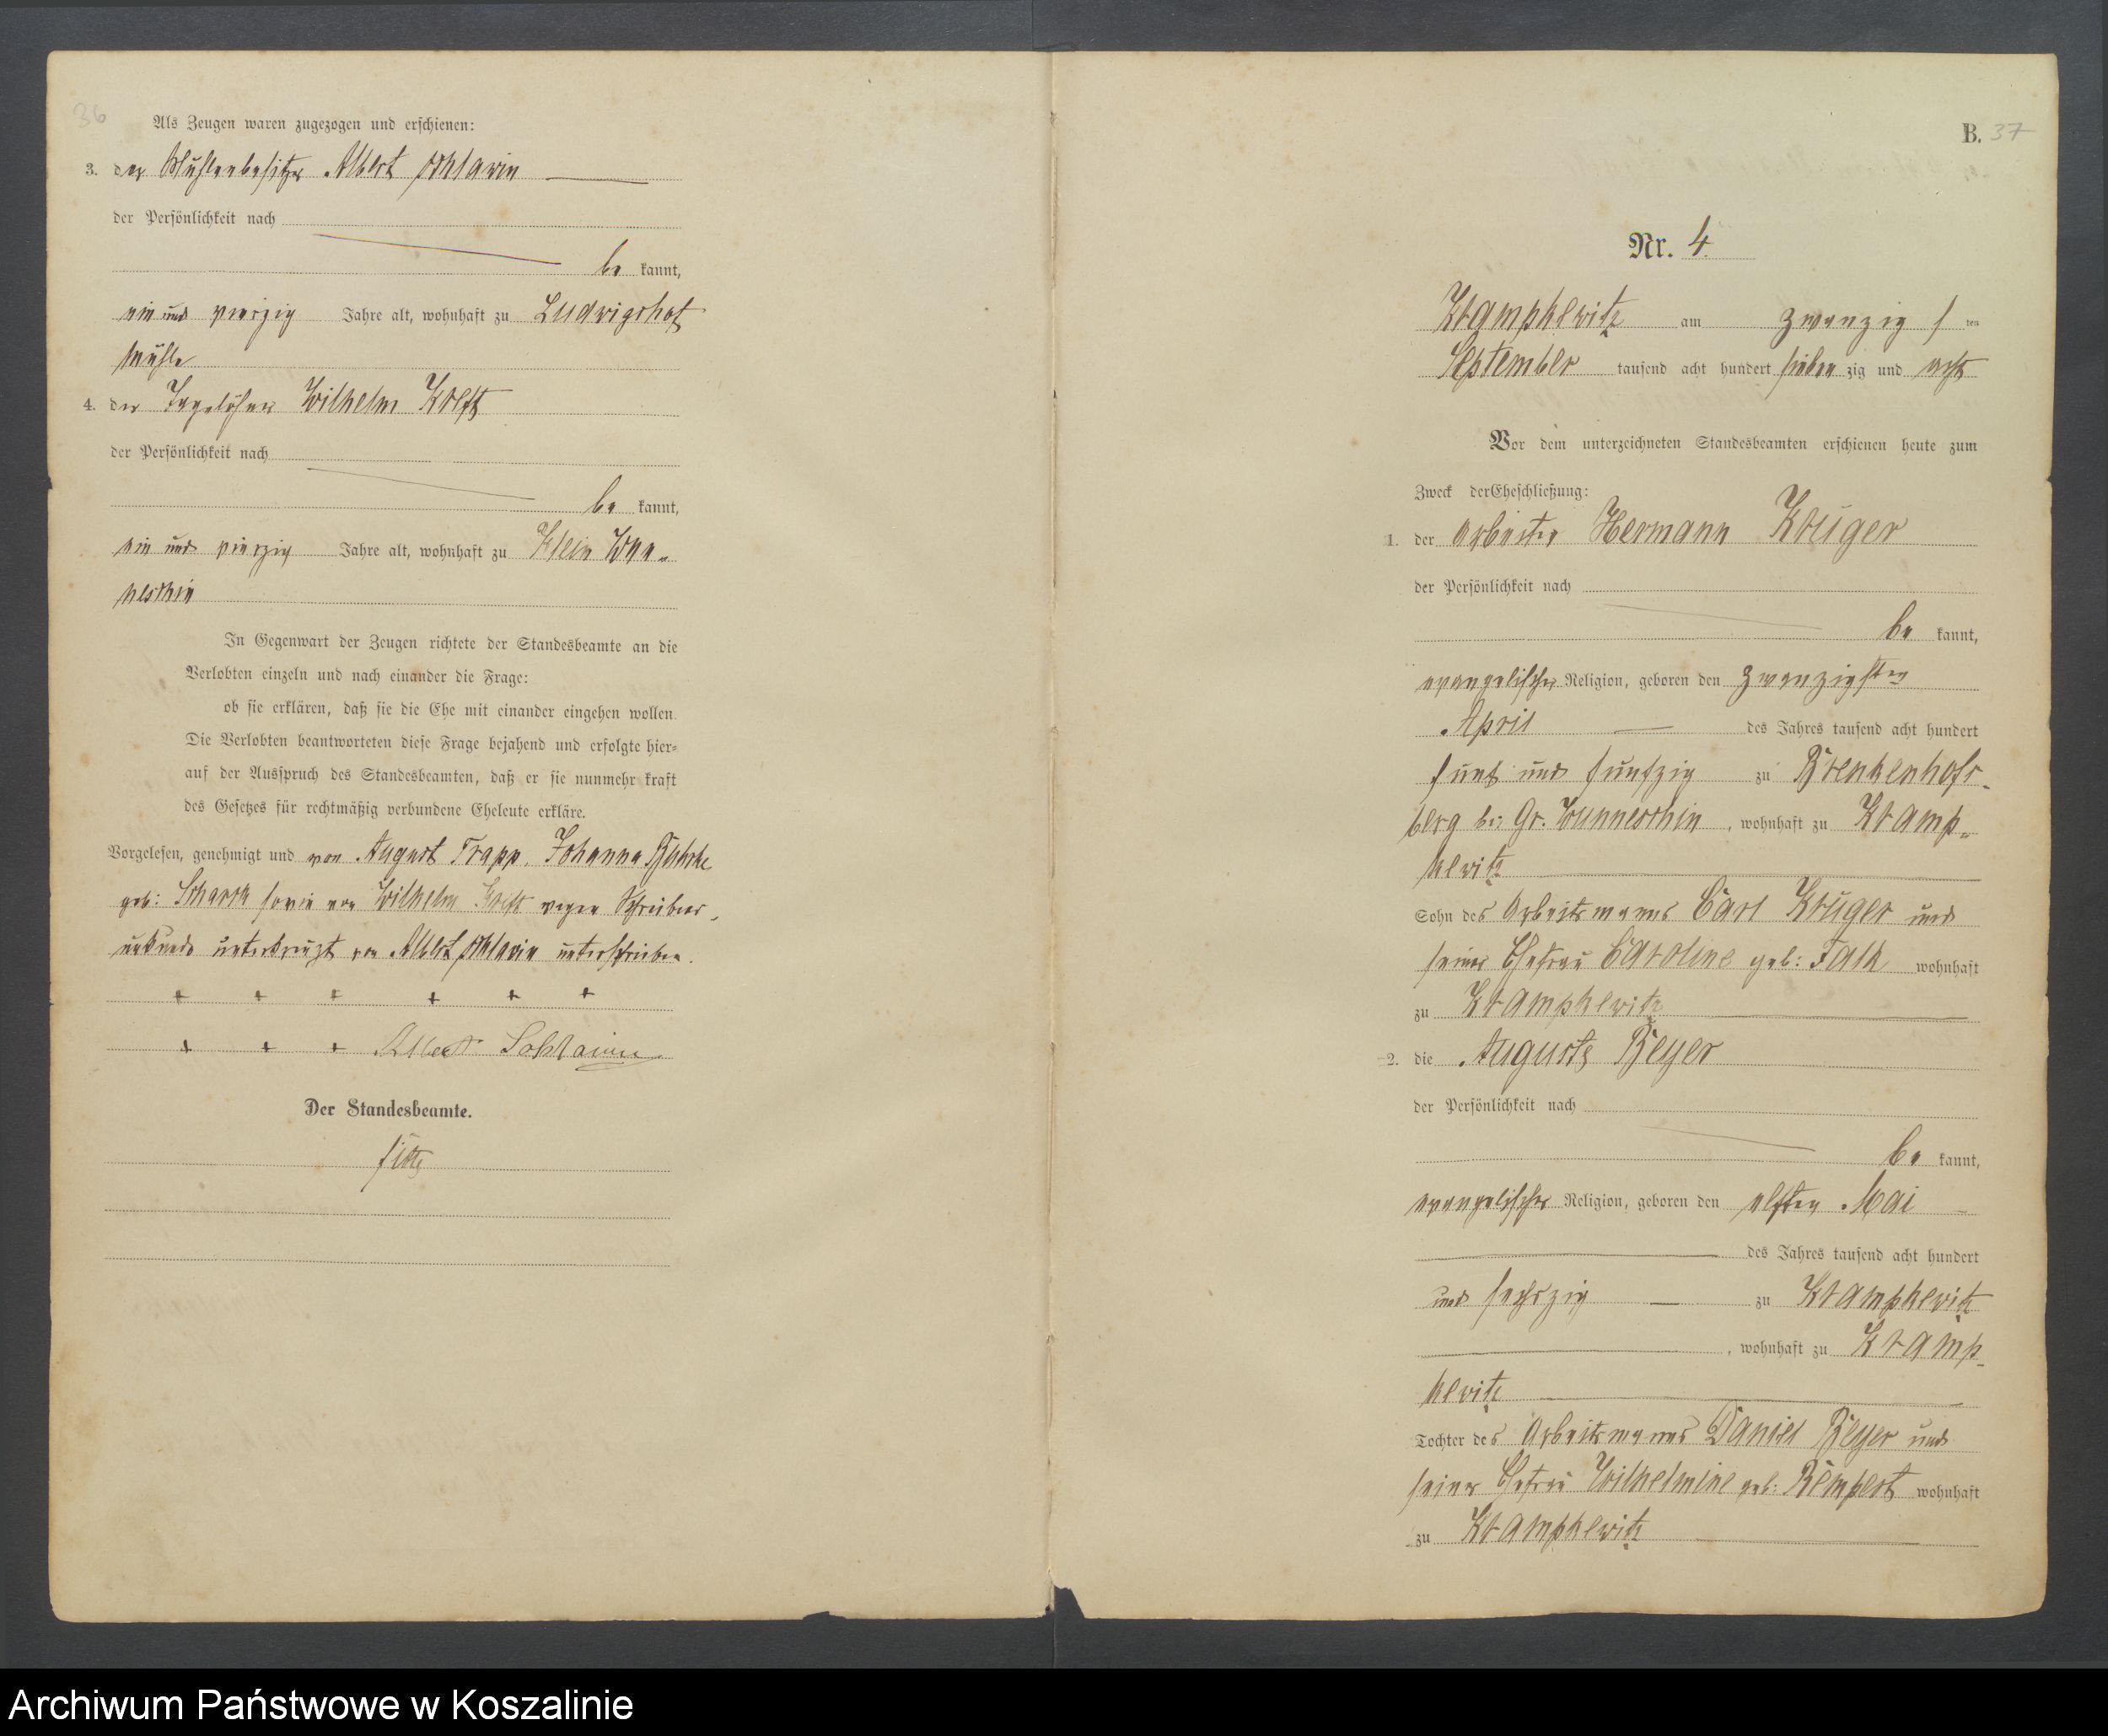 36
Als Zeugen waren zugezogen und erschienen:
3. der Mühlenbesitzer Albert
der Persönlichkeit nach
be kannt,
ein und vierzig Jahre alt, wohnhaft zu Ludwigshof
Mühle
4. der Tagelöhner Wilhelm Kreft
der Persönlichkeit nach
be kannt,
ein und vierzig Jahre alt, wohnhaft zu Klein Wun-
neschin
In Gegenwart der Zeugen richtete der Standesbeamte an die
Verlobten einzeln und nach einander die Frage:
ob sie erklären, daß sie die Ehe mit einander eingehen wollen.
Die Verlobten beantworteten diese Frage bejahend und erfolgte hier-
auf der Ausspruch des Standesbeamten, daß er sie nunmehr kraft
des Gesetzes für rechtmäßig verbundene Eheleute erkläre.
Vorgelesen, genehmigt und von August Trapp, Johanna
geb: sowie von Wilhelm Kreft wegen Schreibens-
unkunde unterkreuzt von Albert unterschrieben.
+ + + + + +
+ + + Albert
Der Standesbeamte.
B. 37
Nr. 4
Krampkewitz am zwanzig s ten
September tausend acht hundert sieben zig und acht
Vor dem unterzeichneten Standesbeamten erschienen heute zum
Zweck der Eheschließung:
1. der Arbeiter Hermann Krüger
der Persönlichkeit nach
be kannt,
evangelischer Religion, geboren den zwanzigsten
April des Jahres tausend acht hundert
fünf und fünfzig zu Brenkenhofs-
berg bei Gr. Wunneschin, wohnhaft zu Kramp-
kewitz
Sohn des Arbeitsmanns Carl Krüger und
seiner Ehefrau Caroline geb: Falk wohnhaft
zu Krampkewitz
2. die Auguste Beyer
der Persönlichkeit nach
be kannt,
evangelischer Religion, geboren den elften Mai
des Jahres tausend acht hundert
und sechszig zu Krampkewitz
, wohnhaft zu Kramp-
kewitz
Tochter des Arbeitsmanns Daniel Beyer und
seiner Ehefrau Wilhelmine geb: Rempert wohnhaft
zu Krampkewitz
Archiwum Państwowe w Koszalinie